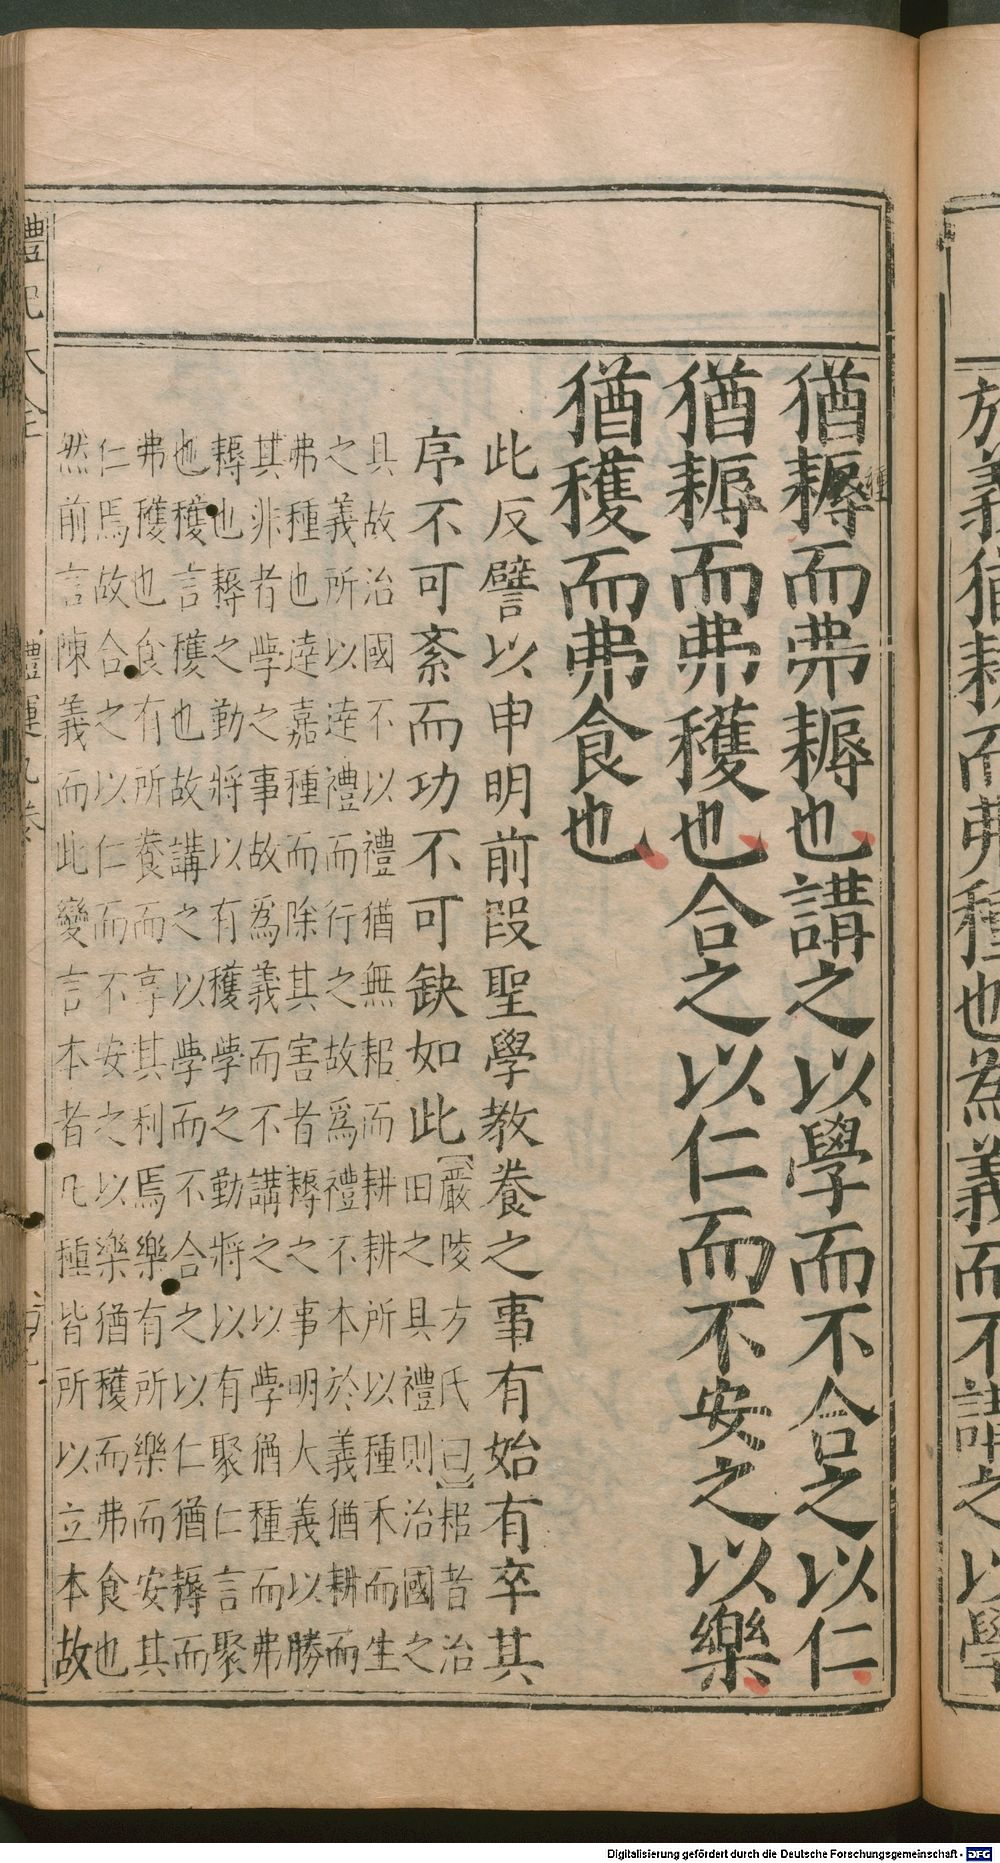 於義猶耕而弗種也為義而不講之以學
種
猶耨而弗耨也講之以學而不合之以仁
猶耨而弗穫也合之以仁而不安之以樂
猶穫而弗食也
此反譬以申明前段聖學教養之事有始有卒其
序不可紊而功不可缺如此【嚴陵方氏曰】耜者治
田之具禮則治國之
具故治國不以禮猶無耜而耕耕所以種禾而生
之義所以逹禮而行之故為禮不本於義猶耕而
弗種也逹嘉種而除其害者耨之事明大義以勝
其非者學之事故為義而不講之以學猶種而弗
耨也耨之勤將以有穫學之勤將以有聚仁言聚
也穫言穫也故講之以學而不合之以仁猶耨而
弗穫也食有所養而享其利焉樂有所樂而安其
仁焉故合之以仁而不安之以樂猶穫而弗食也
然前言陳義而此變言本者凡種皆所以立本故
禮記大全 禮運九卷
Digitalisierung gefördert durch die Deutsche Forschungsgemeinschaft - DFG